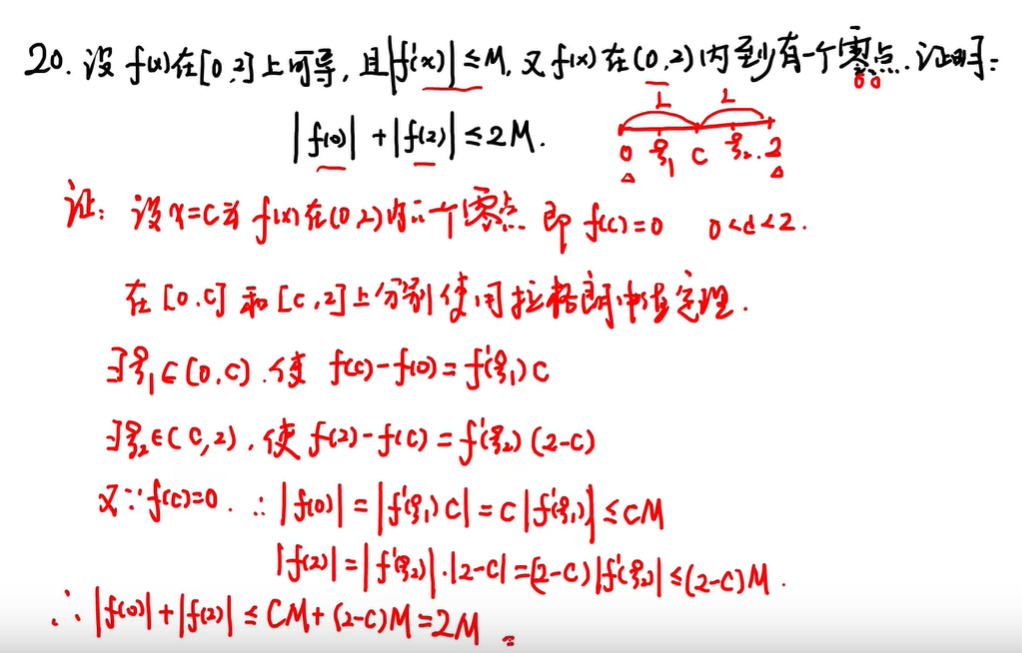 20. 设 f(x)在[0,2]上可导, 且|f'(x)|≤M, 又 f(x) 在(0,2)内至少有一个零点. 证明:
|f(0)|+|f(2)|≤2M.
L L
0 ξ₁ c ξ₂ 2
证: 设x=c为 f(x)在(0,2)内的一个零点 即 f(c)=0 0<c<2.
在 [0,c] 和 [c,2]上分别使用拉格朗中值定理.
∃ξ₁∈(0,c).使 f(c)-f(0)=f'(ξ₁)c
∃ξ₂∈(c,2),使 f(2)-f(c)=f'(ξ₂)(2-c)
又∵f(c)=0. ∴|f(0)|=|f'(ξ₁)c|=c|f'(ξ₁)|≤cM
|f(2)|=|f'(ξ₂)|·|2-c|=(2-c)|f'(ξ₂)|≤(2-c)M.
∴|f(0)|+|f(2)|≤CM+(2-c)M=2M.